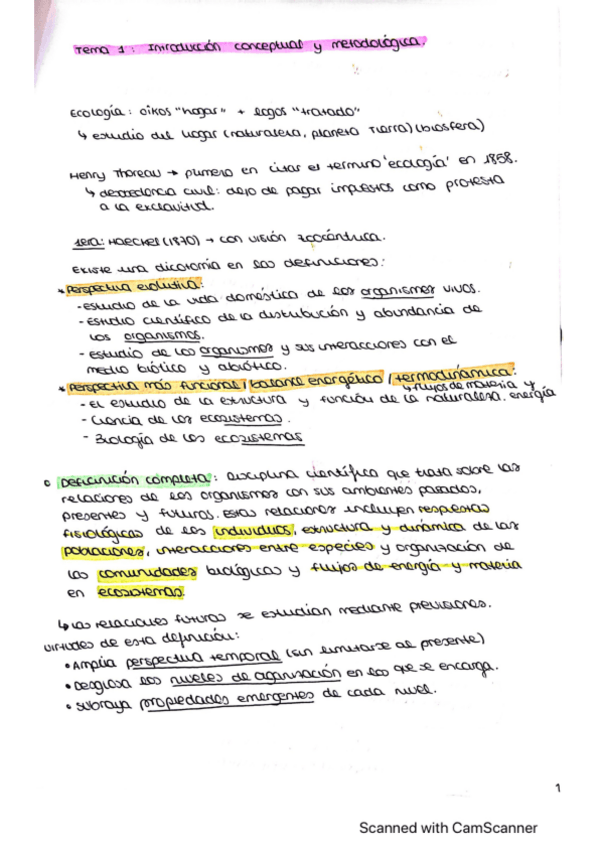 Tema 1: Introducción conceptual y metodológica.
Ecología: oikos "hogar" + logos "tratado"
↳ estudio del hogar (naturaleza, planeta Tierra) (biosfera)
Henry Thoreau → primero en citar el termino 'ecología' en 1858.
↳ desobediencia civil: dejo de pagar impuestos como protesta
a la esclavitud.
1era: HAECKEL (1870) → con visión zoocéntrica.
Existe una dicotomía en las definiciones:
* Perspectiva evolutiva:
- estudio de la vida doméstica de los organismos vivos.
- estudio científico de la distribución y abundancia de
los organismos.
- estudio de los organismos y sus interacciones con el
medio biótico y abiótico.
* Perspectiva más funcional / balance energético / termodinámica:
↳ flujos de materia y energía
- El estudio de la estructura y función de la naturaleza.
- Ciencia de los ecosistemas.
- Biología de los ecosistemas
Definición completa: disciplina científica que trata sobre las
relaciones de los organismos con sus ambientes pasados,
presentes y futuros. Estas relaciones incluyen respuestas
fisiológicas de los individuos, estructura y dinámica de las
poblaciones, interacciones entre especies y organización de
las comunidades biológicas y flujos de energía y materia
en ecosistemas.
↳ las relaciones futuras se estudian mediante previsiones.
Virtudes de esta definición:
• Amplia perspectiva temporal (sin limitarse al presente)
• Desglosa los niveles de organización en los que se encarga.
• Subraya propiedades emergentes de cada nivel.
1
Scanned with CamScanner